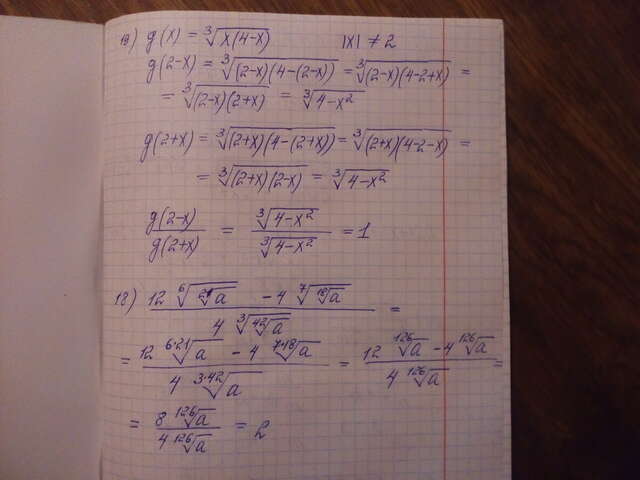 19) g(x) = ∛(x(4-x))   |x| ≠ 2
g(2-x) = ∛((2-x)(4-(2-x))) = ∛((2-x)(4-2+x)) =
= ∛((2-x)(2+x)) = ∛(4-x²)
g(2+x) = ∛((2+x)(4-(2+x))) = ∛((2+x)(4-2-x)) =
= ∛((2+x)(2-x)) = ∛(4-x²)
g(2-x)/g(2+x) = ∛(4-x²)/∛(4-x²) = 1
18) (12 ⁶√(²¹√a) - 4 ⁷√(¹⁸√a))/(4 ³√(⁴²√a)) =
= (12 ⁶·²¹√a - 4 ⁷·¹⁸√a)/(4 ³·⁴²√a) = (12 ¹²⁶√a - 4 ¹²⁶√a)/(4 ¹²⁶√a) =
= (8 ¹²⁶√a)/(4 ¹²⁶√a) = 2